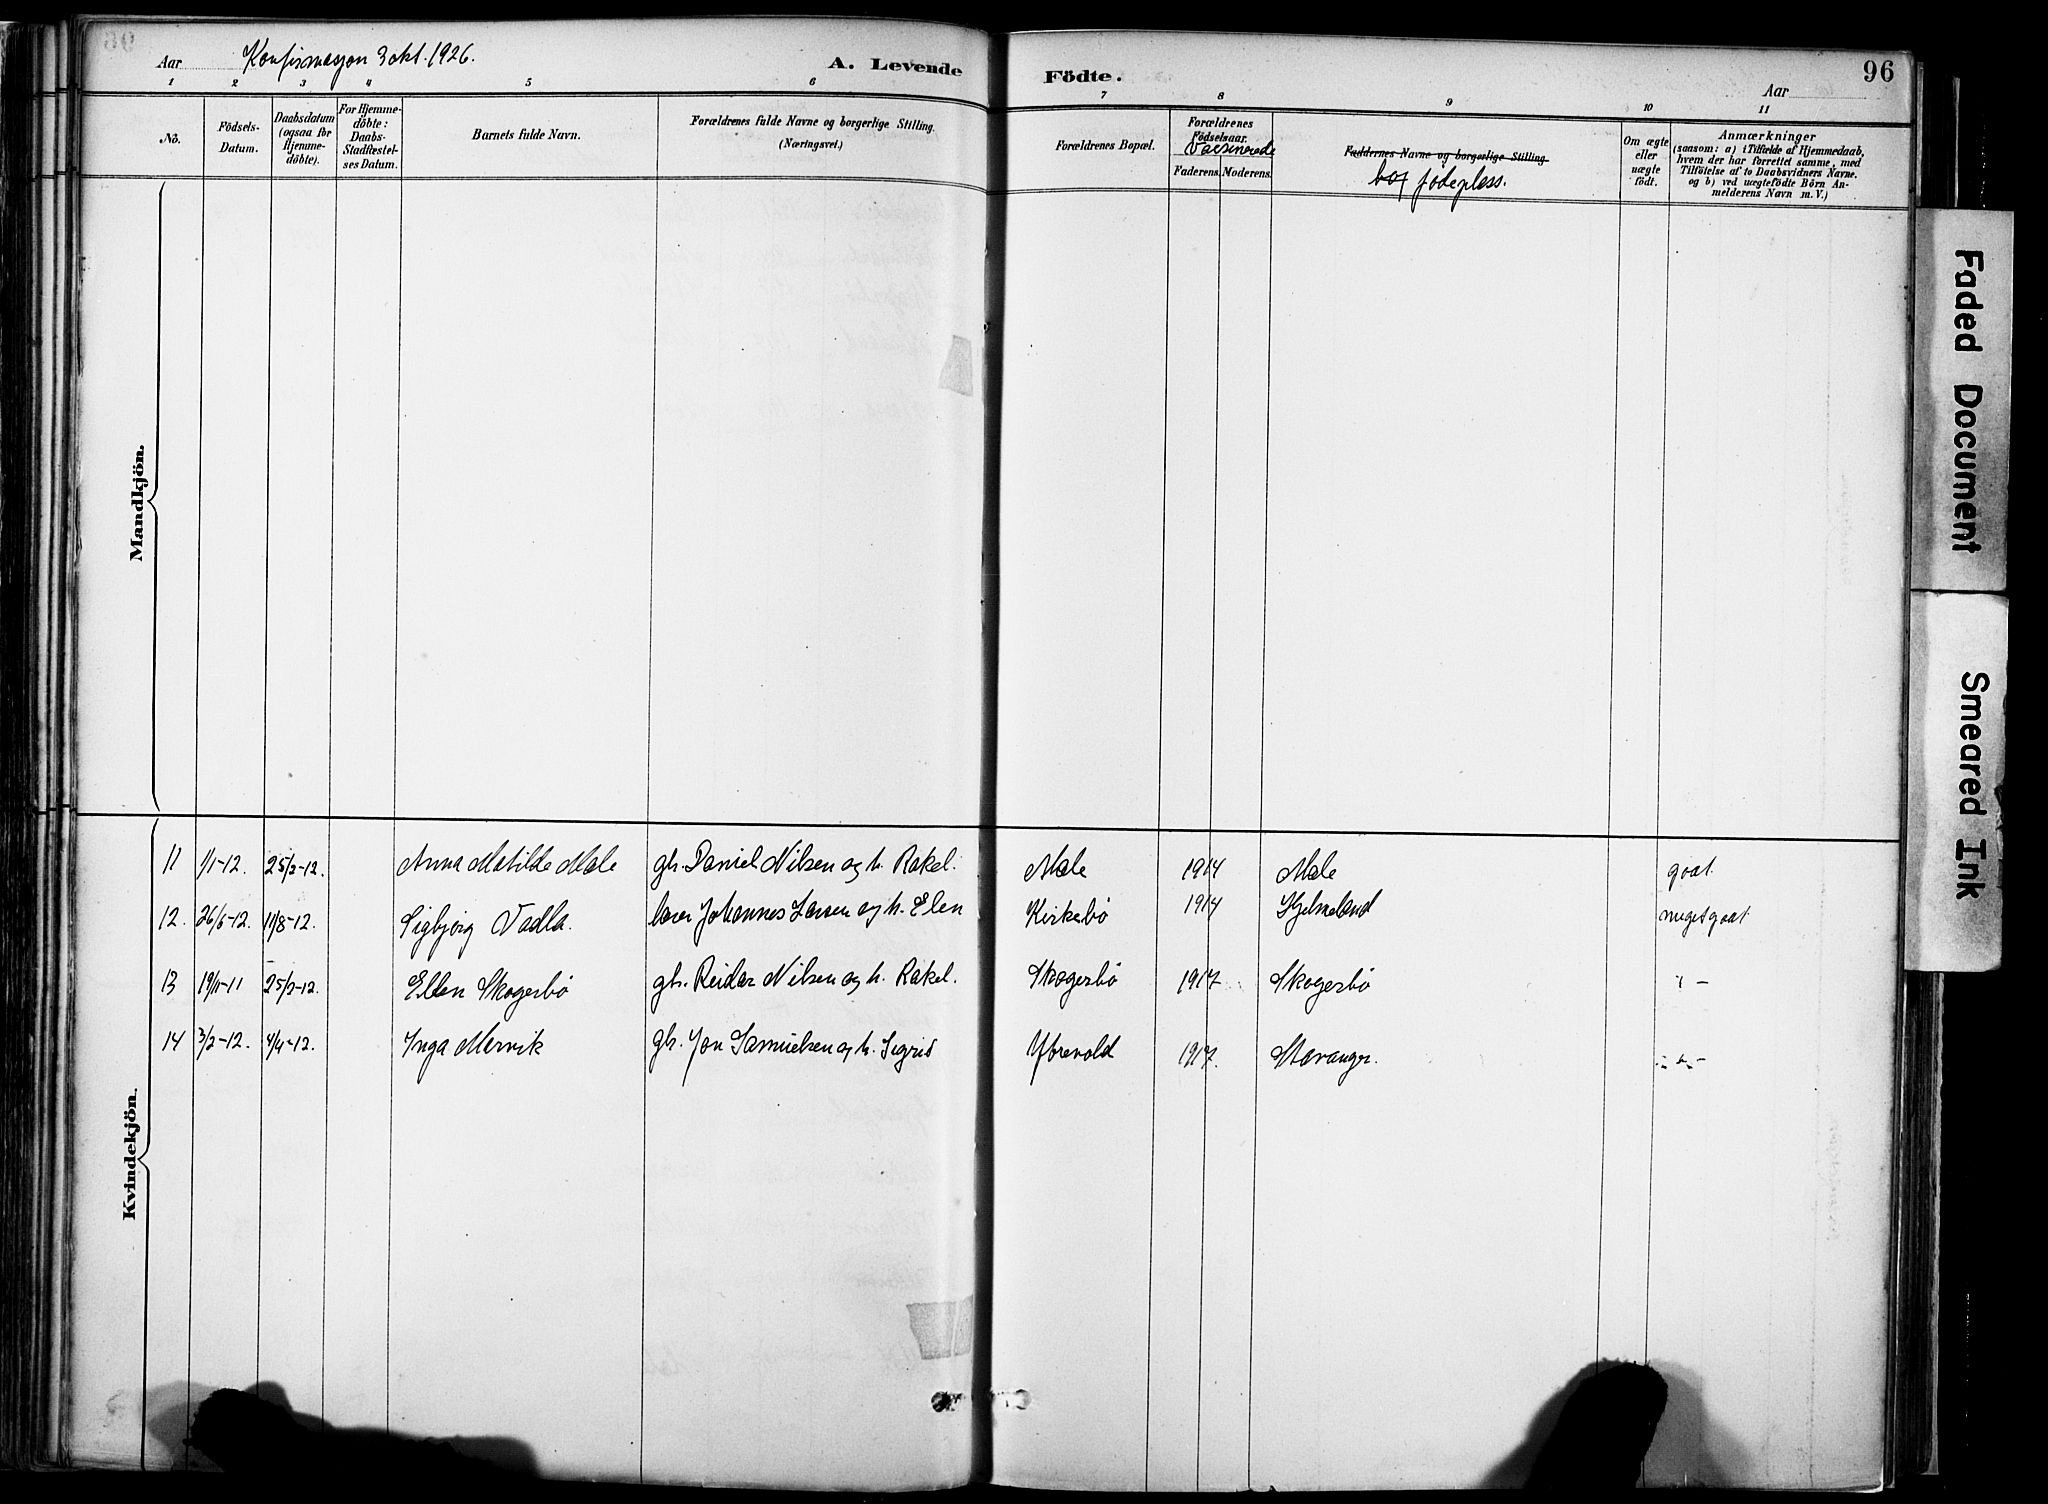 Aar Konfirmasjon 3 okt. 1926.
A. Levende Födte.
96
Aar
1 2 3 4 5 6 7 8 9 10 11
No.
Födsels-
Datum.
Daabsdatum
(ogsaa for
Hjemme-
döbte).
For Hjemme-
döbte:
Daabs-
Stadfæstel-
ses Datum.
Barnets fulde Navn.
Forældrenes fulde Navne og borgerlige Stilling.
(Næringsvei.)
Forældrenes Bopæl.
Forældrenes
Födselsaar.
Vaksinerede
Faderens. Moderens.
Faddernes Navne og borgerlige Stilling
fødepless.
Om ægte
eller
uægte
födt.
Anmærkninger
(saasom: a) i Tilfælde af Hjemmedaab,
hvem der har forrettet samme, med
Tilföielse af to Daabsvidners Navne.
og b) ved uægtefödte Börn An-
melderens Navn m. V.)
Mandkjön.
Kvindekjön.
11 1/1-12. 25/2-12. Anna Matilde Mæle gb. Daniel Nilsen og h. Rakel. Mæle 1914 Mæle goat.
12. 26/6-12. 11/8-12. Sigbjørg Vadla. lærer Johannes Larsen og h. Elen Kirkebø 1914 Hjelmeland megetgoat
13 19/11-11 25/2-12. Ellen Skogerbø gb. Reidar Nilsen og h. Rakel. Skogerbø 1917 Skogerbø - " -
14 3/2-12. 4/4-12. Inga Mervik gb. Jon Samuelsen og h. Sigrid Ybrevold 1917. Stavanger. - " -
Faded Document
Smeared Ink